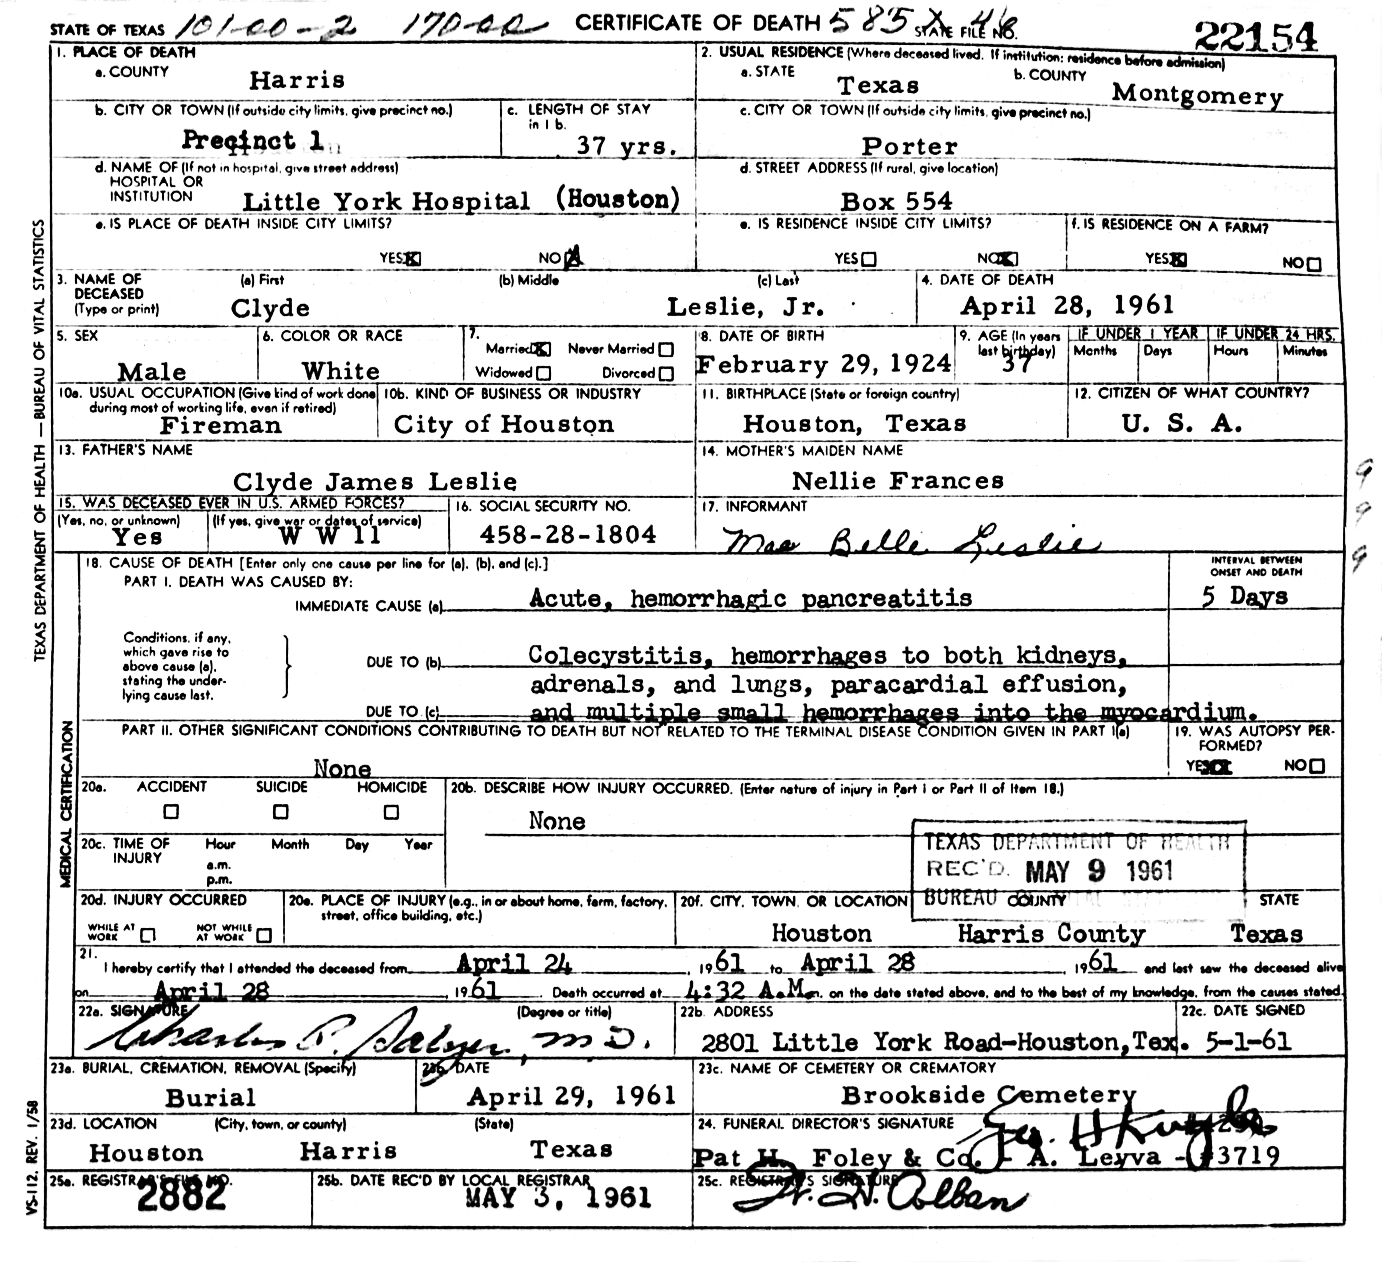 STATE OF TEXAS 101-00-2 170-00 CERTIFICATE OF DEATH 585 STATE FILE NO. 22154
1. PLACE OF DEATH
a. COUNTY Harris
2. USUAL RESIDENCE (Where deceased lived. If institution: residence before admission)
a. STATE Texas b. COUNTY Montgomery
b. CITY OR TOWN (If outside city limits, give precinct no.) Precinct 1
c. LENGTH OF STAY in 1 b. 37 yrs.
c. CITY OR TOWN (If outside city limits, give precinct no.) Porter
d. NAME OF (If not in hospital, give street address) HOSPITAL OR INSTITUTION Little York Hospital (Houston)
d. STREET ADDRESS (If rural, give location) Box 554
e. IS PLACE OF DEATH INSIDE CITY LIMITS? YES NO
e. IS RESIDENCE INSIDE CITY LIMITS? YES NO
f. IS RESIDENCE ON A FARM? YES NO
3. NAME OF DECEASED (Type or print) (a) First Clyde (b) Middle (c) Last Leslie, Jr.
4. DATE OF DEATH April 28, 1961
5. SEX Male
6. COLOR OR RACE White
7. Married Never Married
Widowed Divorced
8. DATE OF BIRTH February 29, 1924
9. AGE (In years last birthday) 37
IF UNDER 1 YEAR Months Days
IF UNDER 24 HRS. Hours Minutes
10a. USUAL OCCUPATION (Give kind of work done during most of working life, even if retired) Fireman
10b. KIND OF BUSINESS OR INDUSTRY City of Houston
11. BIRTHPLACE (State or foreign country) Houston, Texas
12. CITIZEN OF WHAT COUNTRY? U. S. A.
13. FATHER'S NAME Clyde James Leslie
14. MOTHER'S MAIDEN NAME Nellie Frances
15. WAS DECEASED EVER IN U.S. ARMED FORCES?
(Yes, no, or unknown) Yes (If yes, give war or dates of service) W W 11
16. SOCIAL SECURITY NO. 458-28-1804
17. INFORMANT Mae Belle Leslie
18. CAUSE OF DEATH [Enter only one cause per line for (a), (b), and (c).]
PART I. DEATH WAS CAUSED BY:
INTERVAL BETWEEN ONSET AND DEATH
IMMEDIATE CAUSE (a) Acute, hemorrhagic pancreatitis 5 Days
Conditions, if any, which gave rise to above cause (a), stating the underlying cause last.
DUE TO (b) Colecystitis, hemorrhages to both kidneys,
adrenals, and lungs, paracardial effusion,
DUE TO (c) and multiple small hemorrhages into the myocardium.
PART II. OTHER SIGNIFICANT CONDITIONS CONTRIBUTING TO DEATH BUT NOT RELATED TO THE TERMINAL DISEASE CONDITION GIVEN IN PART I(a)
None
19. WAS AUTOPSY PERFORMED? YES NO
20a. ACCIDENT SUICIDE HOMICIDE
20b. DESCRIBE HOW INJURY OCCURRED. (Enter nature of injury in Part I or Part II of Item 18.)
None
20c. TIME OF INJURY Hour Month Day Year
a.m.
p.m.
TEXAS DEPARTMENT OF HEALTH
REC'D. MAY 9 1961
BUREAU
20d. INJURY OCCURRED
WHILE AT WORK NOT WHILE AT WORK
20e. PLACE OF INJURY (e.g., in or about home, farm, factory, street, office building, etc.)
20f. CITY, TOWN, OR LOCATION COUNTY STATE
Houston Harris County Texas
21. I hereby certify that I attended the deceased from April 24, 1961 to April 28 1961 and last saw the deceased alive
on April 28 1961 Death occurred at 4:32 A.M. m. on the date stated above, and to the best of my knowledge, from the causes stated.
22a. SIGNATURE (Degree or title) Charles P. M.D.
22b. ADDRESS 2801 Little York Road-Houston, Tex.
22c. DATE SIGNED 5-1-61
23a. BURIAL, CREMATION, REMOVAL (Specify) Burial
23b. DATE April 29, 1961
23c. NAME OF CEMETERY OR CREMATORY Brookside Cemetery
23d. LOCATION (City, town, or county) (State)
Houston Harris Texas
24. FUNERAL DIRECTOR'S SIGNATURE Geo. H
Pat H. Foley & Co. - A. Leyva - #3719
25a. REGISTRAR'S FILE NO. 2882
25b. DATE REC'D BY LOCAL REGISTRAR MAY 3, 1961
25c. REGISTRAR'S SIGNATURE
TEXAS DEPARTMENT OF HEALTH — BUREAU OF VITAL STATISTICS
MEDICAL CERTIFICATION
VS-112. REV. 1/58
9
9
9